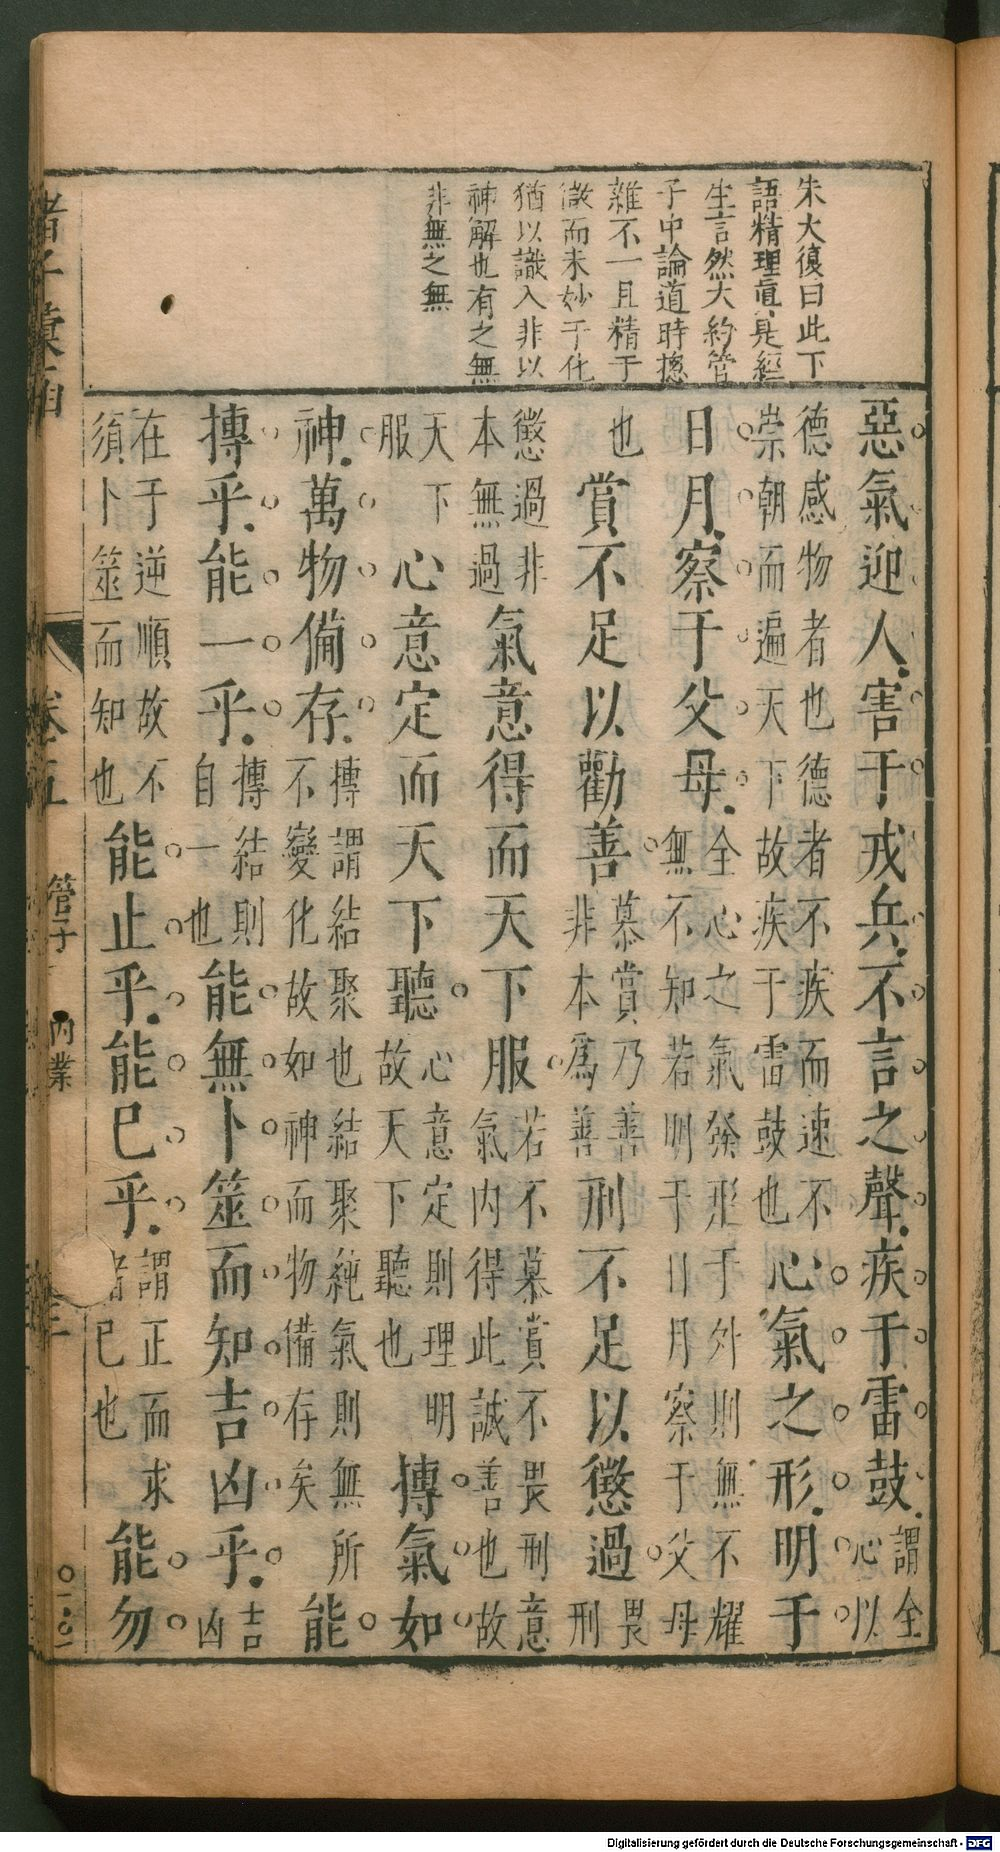 朱大復曰此下
語精理眞是經
生言然大約管
子中論道時摠
雜不一且精于
微而未妙于化
猶以識入非以
神解也有之無
非無之無
惡氣迎人害于戎兵不言之聲疾于雷鼓謂全心以
德感物者也德者不疾而速不崇朝而遍天下故疾于雷鼓也心氣之形明于
日月察于父母全心之氣發形于外則無不耀無不知若明于日月察于父母
也賞不足以勸善慕賞乃善非本爲善刑不足以懲過畏刑
懲過非本無過氣意得而天下服若不慕賞不畏刑意氣内得此誠善也故
天下服心意定而天下聽心意定則理明故天下聽也摶氣如
神萬物備存摶謂結聚也結聚純氣則無所不變化故如神而物備存矣能
摶乎能一乎摶結則自一也能無卜筮而知吉凶乎吉凶
在于逆順故不須卜筮而知也能止乎能已乎謂正而求者已也能勿
卷五 管子 内業
Digitalisierung gefördert durch die Deutsche Forschungsgemeinschaft - DFG